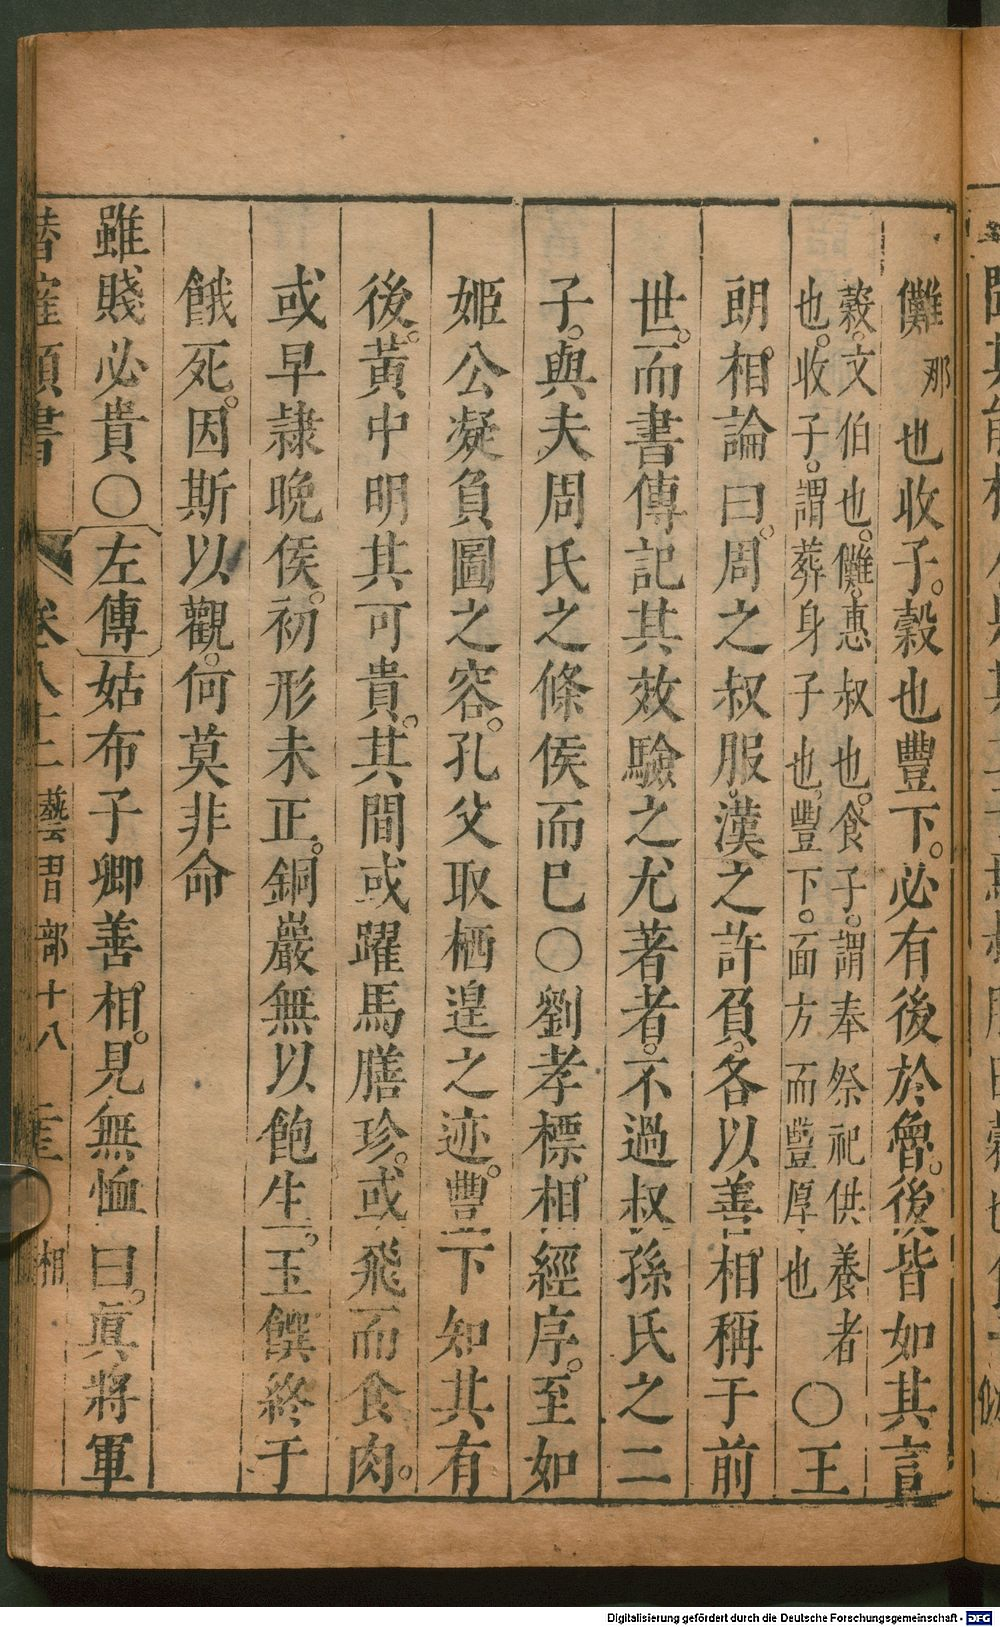 儺那也收子。穀也豐下。必有後於魯。後皆如其言
穀。文伯也。儺。惠叔也。食子。謂奉祭祀供養者
也。收子。謂葬身子也。豐下。面方而豐厚也
〇王
朗。相論曰。周之叔服。漢之許負。各以善相。稱于前
世。而書傳記其效驗之尤著者。不過叔孫氏之二
子。與夫周氏之條侯而巳〇劉孝標相。經序。至如
姬公凝負圖之容。孔父取栖遑之迹。豐下知其有
後。黃中明其可貴。其間或躍馬膳珍。或飛而食肉。
或早隷晚侯。初形未正。銅巖無以飽生。玉饌終于
餓死。因斯以觀。何莫非命
雖賤必貴〇左傳姑布子卿善相。見無恤曰。眞將軍
類書 卷八十二 藝習部十八 相
Digitalisierung gefördert durch die Deutsche Forschungsgemeinschaft - DFG